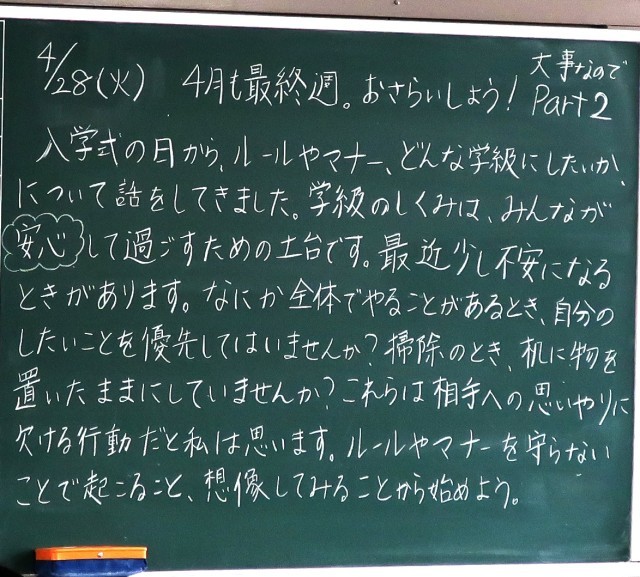 4/28(火) 4月も最終週。おさらいしよう! 大事なので Part2
入学式の日から、ルールやマナー、どんな学級にしたいか、
について話をしてきました。学級のしくみは、みんなが
安心して過ごすための土台です。最近少し不安になる
ときがあります。なにか全体でやることがあるとき、自分の
したいことを優先してはいませんか?掃除のとき、机に物を
置いたままにしていませんか?これらは相手への思いやりに
欠ける行動だと私は思います。ルールやマナーを守らない
ことで起こること、想像してみることから始めよう。